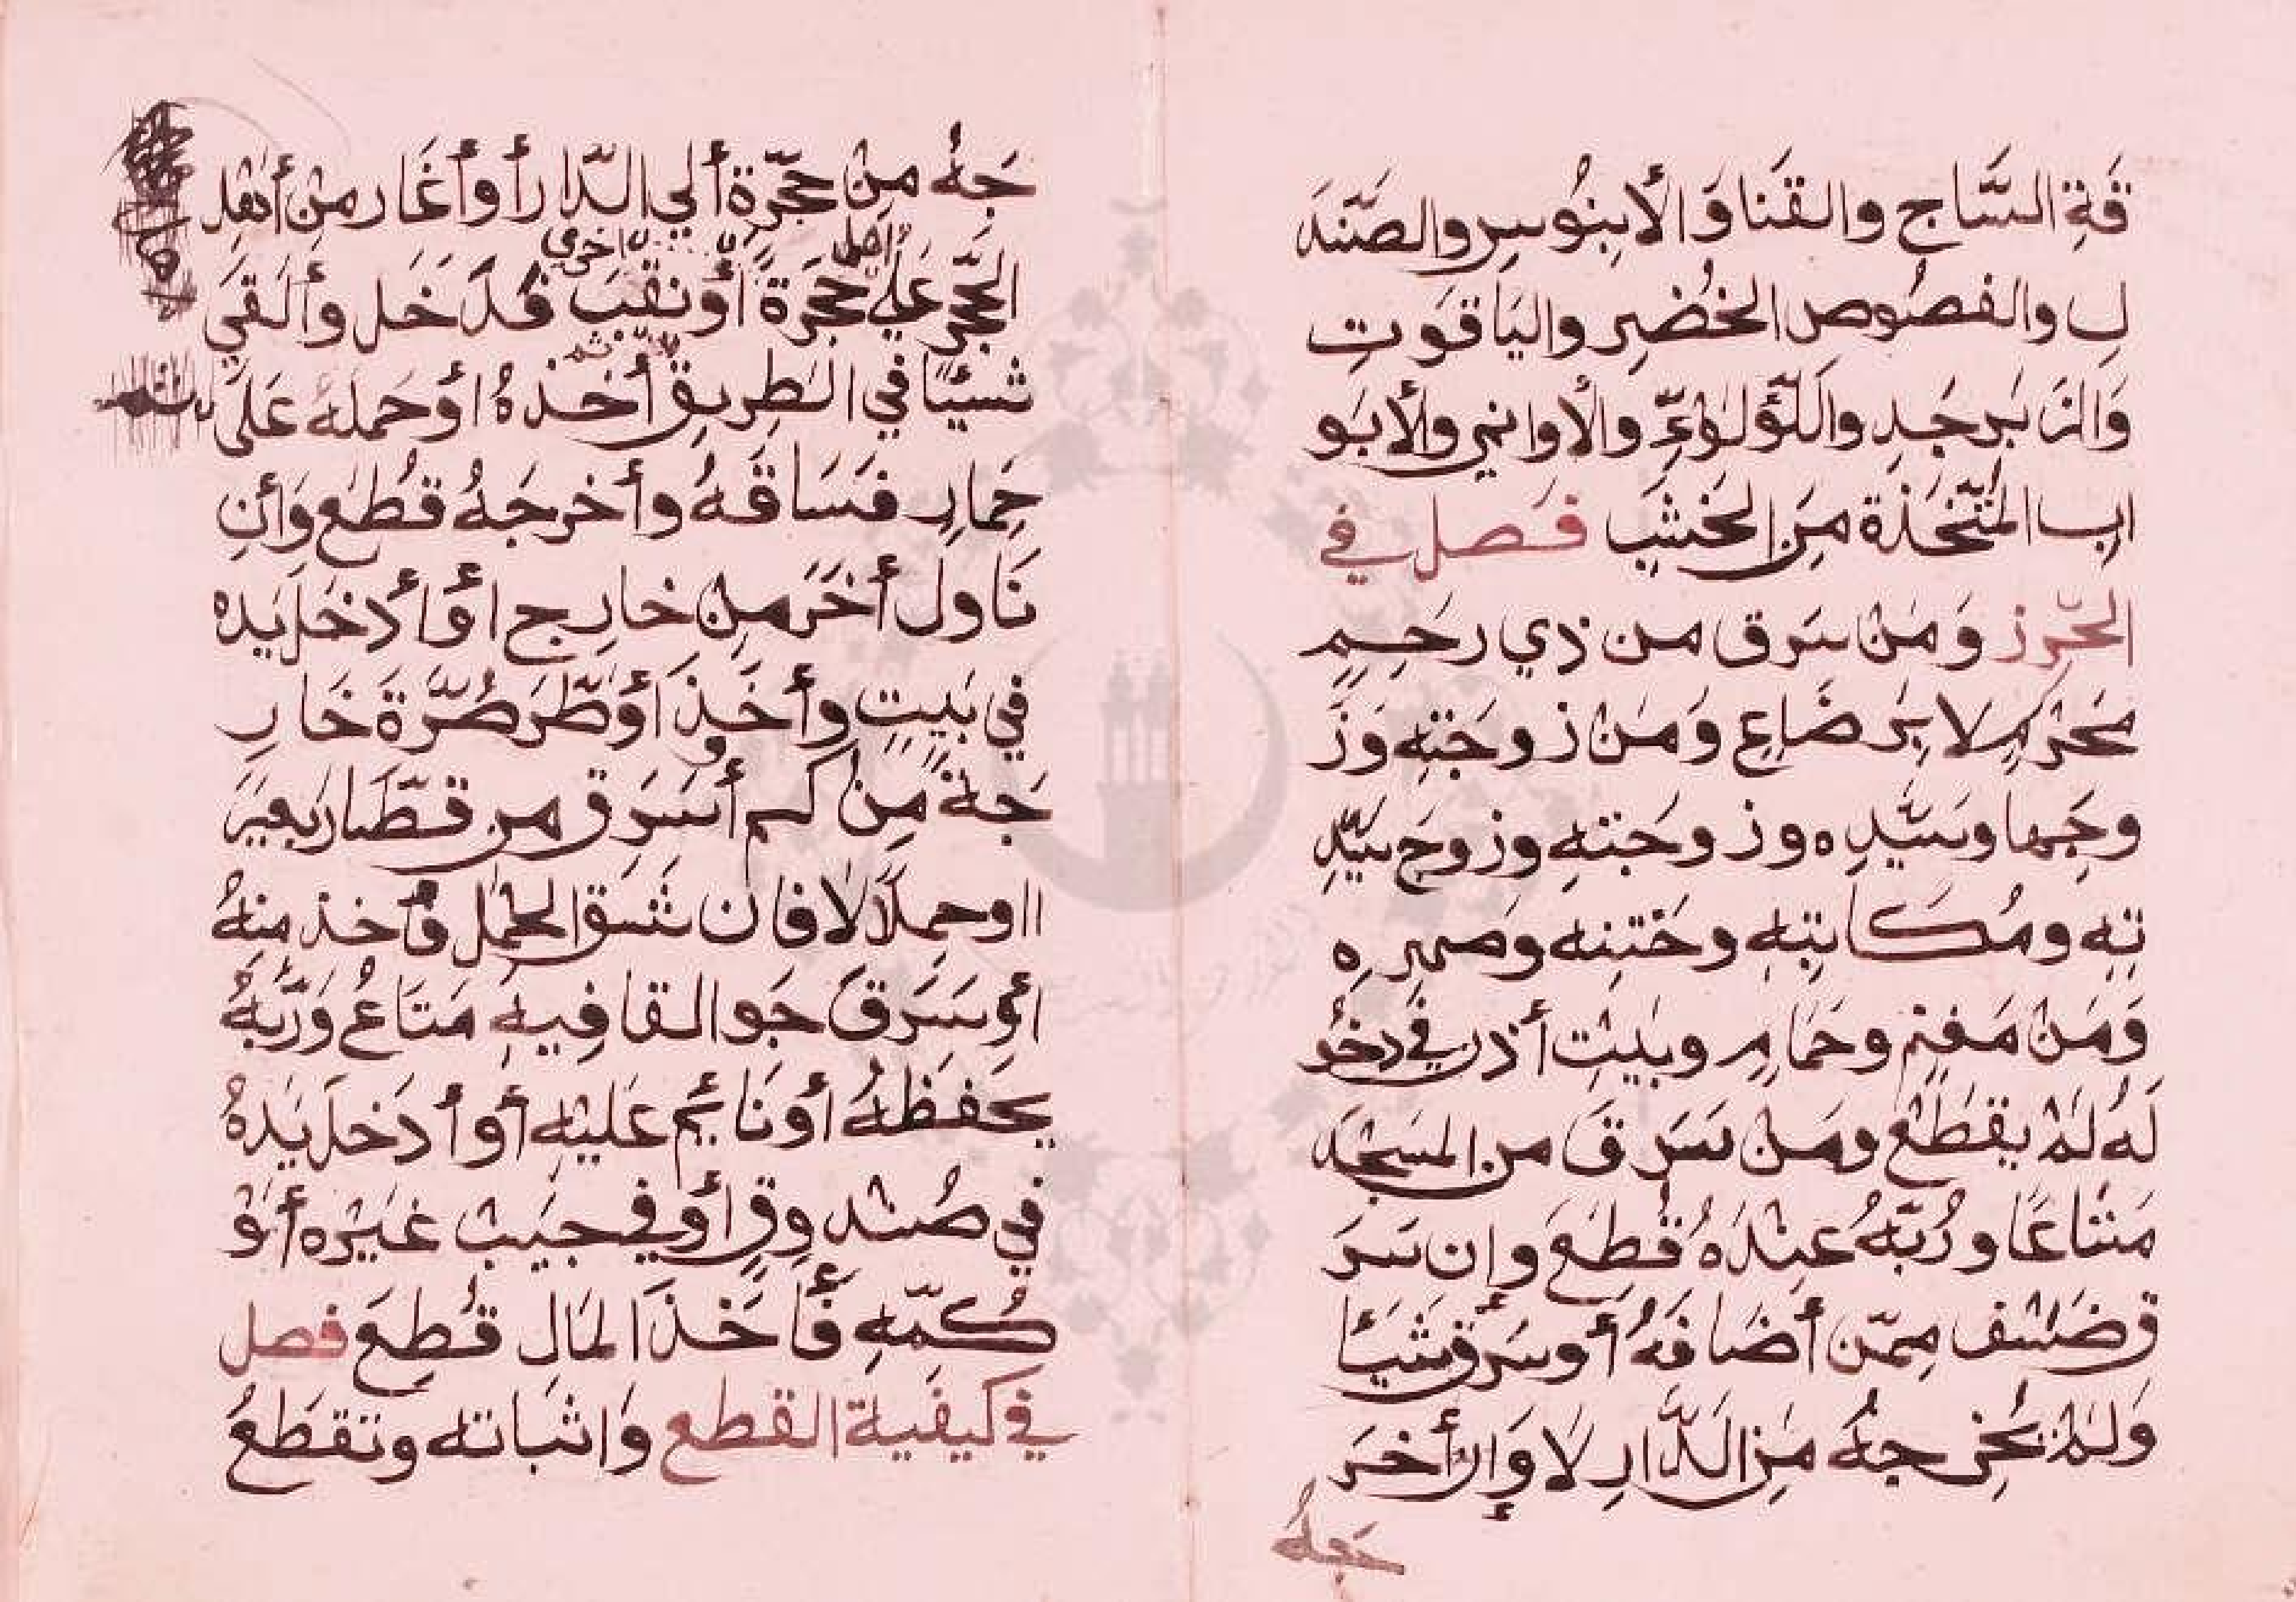 قَةِ السَّاجِ والقَنا وَالأبِنُوسِ والصَّنْدَ
لِ والفصُوصِ الخُضْرِ واليَاقوتِ
وَالزَبَرجَدِ واللُّؤلؤءِ والأواني والأبَو
ابِ المُتَّخَذة مِنَ الخشَبِ فصل في
الحَرز وَمَنْ سَرَق من ذي رحِمٍ
مَحْرَمٍ لا بِرَضَاعٍ وَمَنْ زوجَتِهِ وَزَ
وجِها وسَيِّدِه وزوجَتهِ وزوجِ سَيِّدِ
تِهِ ومُكاتبَتِهِ وخَتنِه وصهرِه
وَمَنْ مَغنِمٍ وحَمّامٍ وبَيْتِ أذن في دخُو
لَهُ لَمْ يقطَعْ ومَنْ سَرَقَ من المسْجِدَ
مَتاعًا ورُبَّهُ عِنْدَهُ قُطِعَ وإن سَرَ
ق ضَيْف مِمَّن أضَافهُ أو سَرق شَيئا
وَلَمْ يُخرِجهُ مِنَ الدَّارِ لا وَإن أخرَ
جهُ
جَهُ مِنْ حجْرَةٍ ألي الدّار أو أغَار مِنْ أهْلِ
الحُجَرِ عَلي أهل حجَرَة أو نقَبَ فدَخَل وألقَي اخري
شيْئًا في الطرِيقِ ثم أخذهُ أو حَملهُ عَلَى
حِمارٍ فسَاقهُ وأخرجَهُ قُطِع وَأنِ
نَاولَ أخَرَ مِنْ خارِج أو أدخَلَ يَده
في بَيتٍ وأخَذ أو طَرّ صُرَّةَ خَارِ
جَة مِنْ كم أو سَرَق من قطَّار بَعِيرَ
ا اوحِملاً لا فان شَق الحِمْل فأخذ منهُ
أوسَرَقَ جَوالقا فِيهِ مَتاعُ وَرَبُّهُ
يحفظهُ أو نَائِم عَليْهِ أو أدخلَ يَدَهُ
في صُنْدوقٍ أوفي جيْبِ غيْرِه أوْ
كُمّهِ فأخذَ المَالَ قُطِعَ فصل
في كيفية القطع وَاثبَاته وتقطَعُ